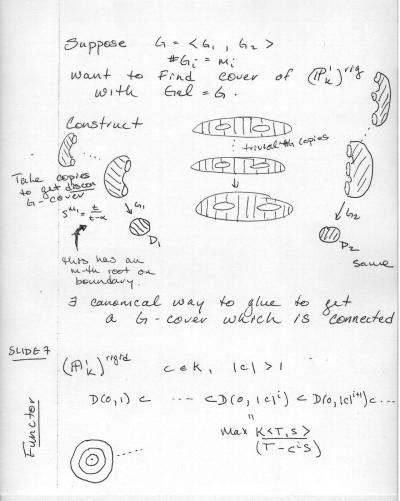 Suppose G = <G₁, G₂>
#Gᵢ = mᵢ
want to find cover of (ℙ¹ₖ)ʳⁱᵍ
with Gal = G.
Construct
trivial copies
Take copies
to get discon
G-cover
S^m₁ = t/(t-α)
↓ G₁
D₁
this has an
m-th root on
boundary.
↓ G₂
D₂
same
∃ canonical way to glue to get
a G-cover which is connected
SLIDE 7
(𝔸¹ₖ)ʳⁱᵍⁱᵈ c ∈ K, |c| > 1
D(0,1) ⊂ ··· ⊂ D(0,|c|ⁱ) ⊂ D(0,|c|ⁱ⁺¹) ⊂ ...
"
Max K<T,S>/(T-cⁱS)
Functor